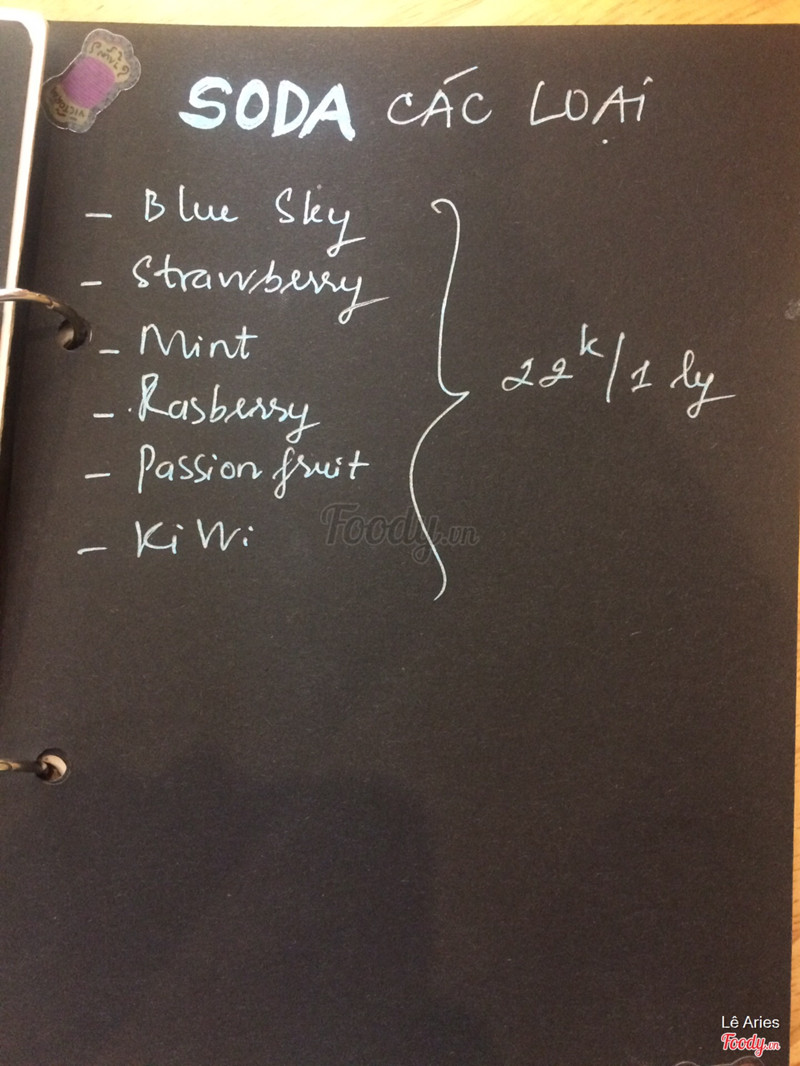 SODA CÁC LOẠI
- Blue Sky
- Strawberry
- Mint
- Rasberry
- Passion fruit
- KiWi
22k/1 ly
Foody.vn
Lê Aries
Foody.vn